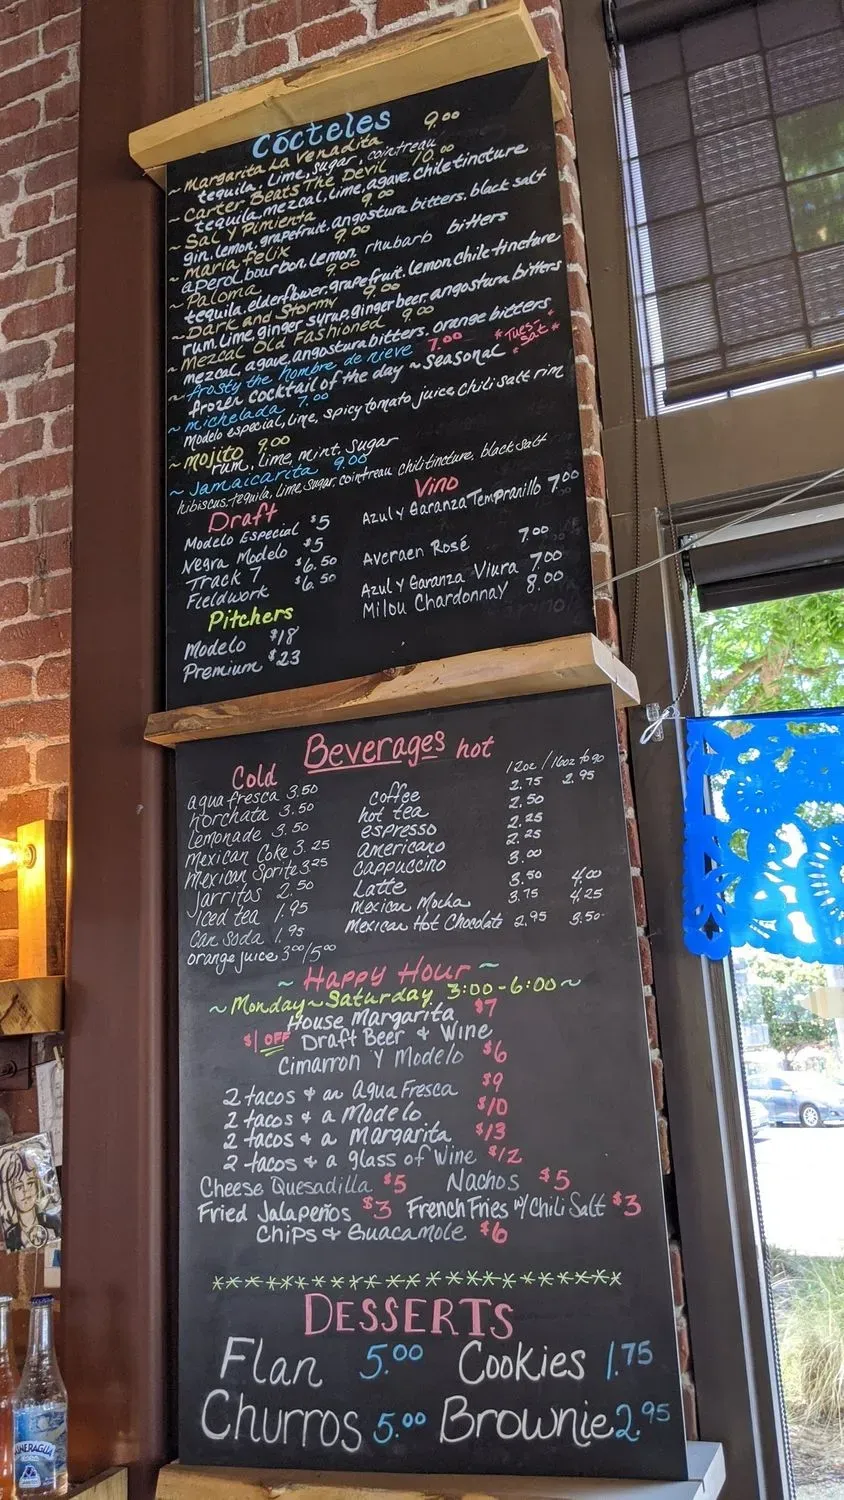 Cócteles
~ Margarita La Venadita 9.00
tequila, Lime, sugar, cointreau
~ Carter Beats The Devil 10.00
tequila, mezcal, lime, agave, chile tincture
~ Sal Y Pimienta 9.00
gin, lemon, grapefruit, angostura bitters, black salt
~ Maria Felix 9.00
aperol, bourbon, lemon, rhubarb bitters
~ Paloma 9.00
tequila, elderflower, grapefruit, lemon, chile tincture
~ Dark and Stormy 9.00
rum, Lime, ginger syrup, ginger beer, angostura bitters
~ Mezcal Old Fashioned 9.00
mezcal, agave, angostura bitters, orange bitters
~ frosty the hombre de nieve 7.00 *Tues-Sat*
frozen cocktail of the day ~ seasonal
~ michelada 7.00
Modelo especial, lime, spicy tomato juice, chili salt rim
~ Mojito 9.00
rum, lime, mint, sugar
~ Jamaicarita 9.00
hibiscus-tequila, lime, sugar, cointreau, chili tincture, black salt
Draft
Modelo Especial $5
Negra Modelo $5
Track 7 $6.50
Fieldwork $6.50
Pitchers
Modelo $18
Premium $23
Vino
Azul y Garanza Tempranillo 7.00
Averaen Rosé 7.00
Azul y Garanza Viura 7.00
Milou Chardonnay 8.00
Beverages
Cold
agua fresca 3.50
horchata 3.50
lemonade 3.50
Mexican Coke 3.25
Mexican Sprite 3.25
Jarritos 2.50
iced tea 1.95
can soda 1.95
orange juice 3.00/5.00
hot
12oz / 16oz to go
coffee 2.75 2.95
hot tea 2.50
espresso 2.25
americano 2.25
cappuccino 3.00
Latte 3.50 4.00
Mexican Mocha 3.75 4.25
Mexican Hot Chocolate 2.95 3.50
~ Happy Hour ~
~ Monday ~ Saturday 3:00-6:00 ~
House Margarita $7
$1 OFF Draft Beer & Wine
Cimarron Y Modelo $6
2 tacos & an Agua Fresca $9
2 tacos & a Modelo $10
2 tacos & a Margarita $13
2 tacos & a glass of Wine $12
Cheese Quesadilla $5 Nachos $5
Fried Jalapeños $3 French Fries w/ Chili Salt $3
Chips & Guacamole $6
DESSERTS
Flan 5.00 Cookies 1.75
Churros 5.00 Brownie 2.95